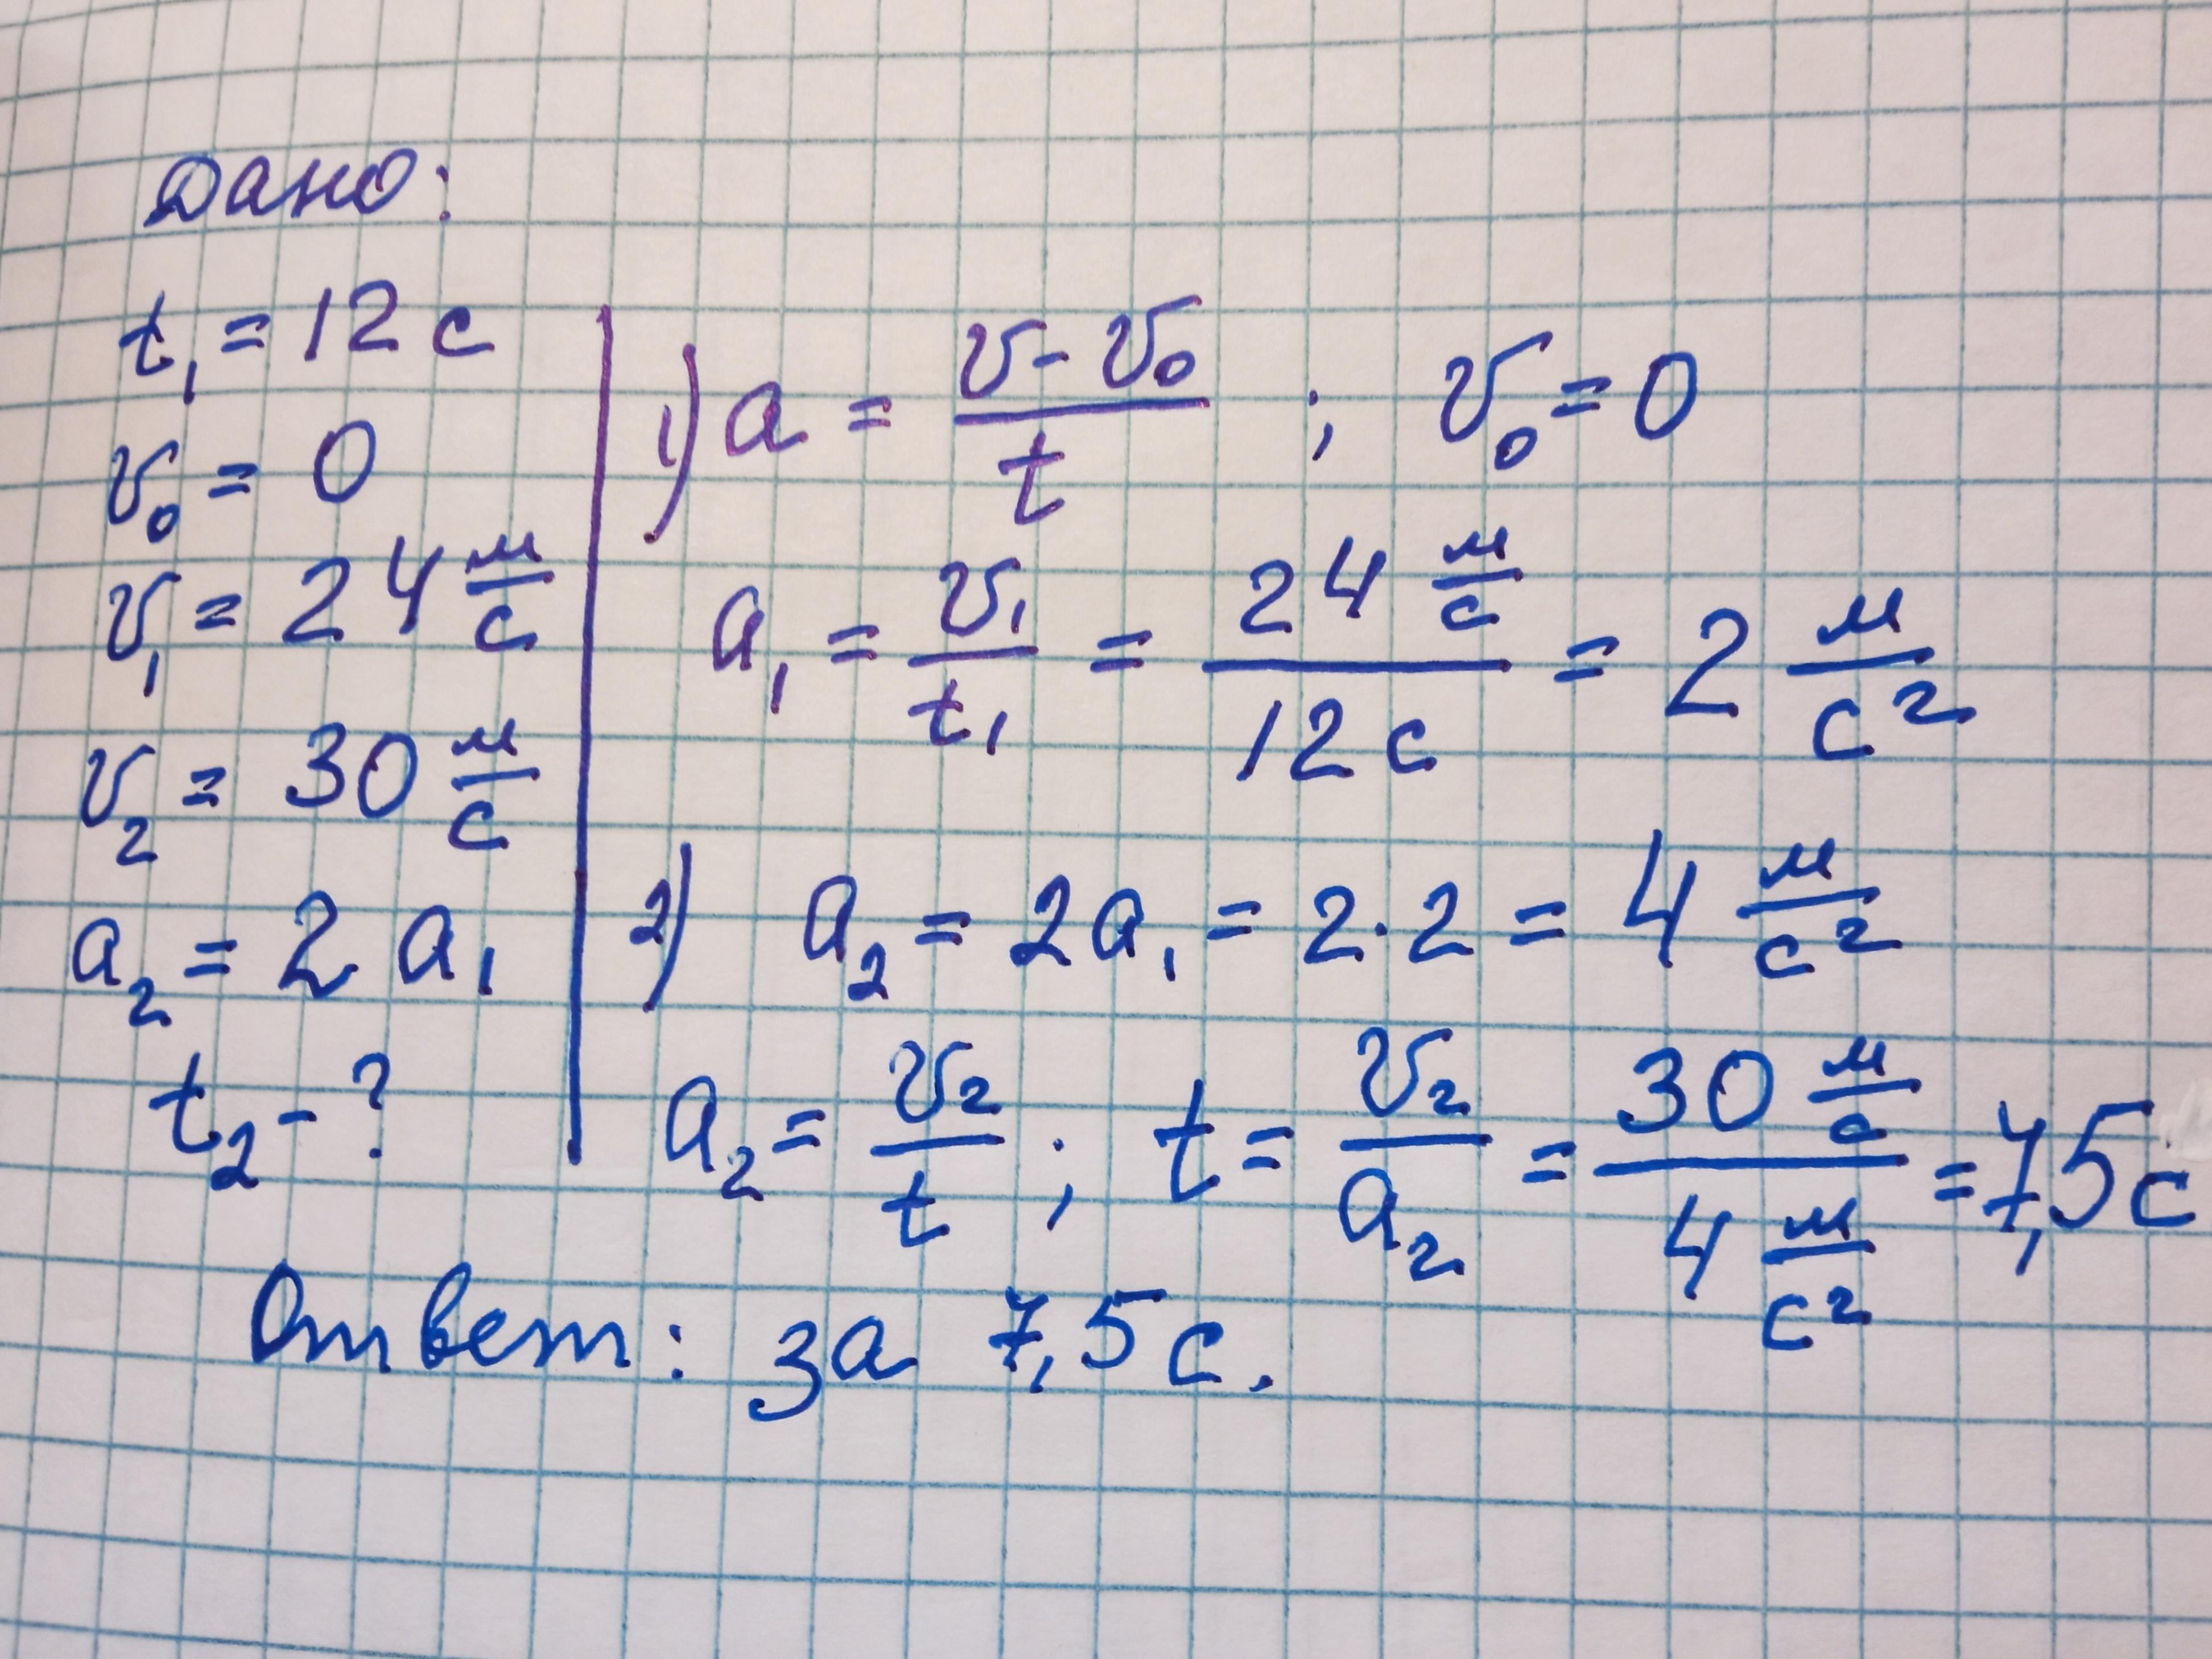 Дано:
t₁ = 12 с
v₀ = 0
v₁ = 24 м/с
v₂ = 30 м/с
a₂ = 2 a₁
t₂ - ?
1) a = (v - v₀)/t ; v₀ = 0
a₁ = v₁/t₁ = 24 м/с / 12 с = 2 м/с²
2) a₂ = 2a₁ = 2·2 = 4 м/с²
a₂ = v₂/t ; t = v₂/a₂ = 30 м/с / 4 м/с² = 7,5 с
Ответ: за 7,5 с.